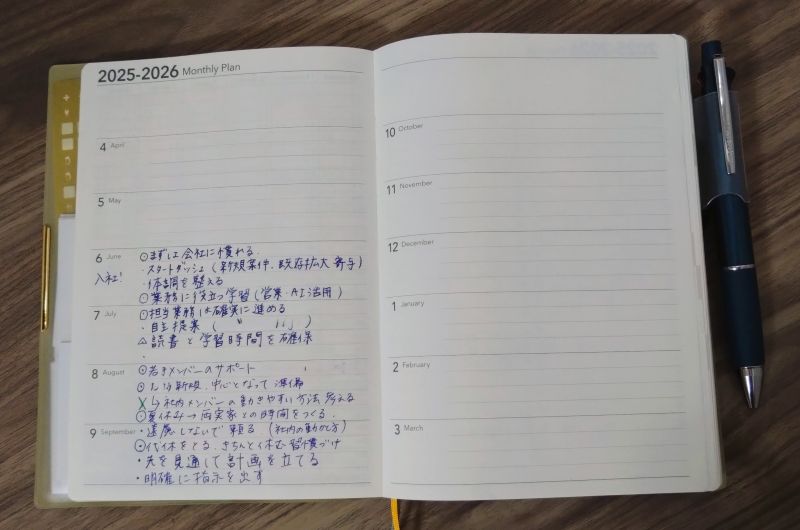 2025-2026 Monthly Plan
4 April
5 May
6 June
入社!
◎まずは会社に慣れる.
・スタートダッシュ (新規案件、既存拡大 寄与)
・体調を整える
◎業務に役立つ学習 (営業・AI活用)
7 July
◎担当業務は確実に進める
・自主提案 ( 〃 〃 )
△読書と学習時間を確保
・
8 August
◎若手メンバーのサポート
新規、中心となって準備
× ↳社内メンバーの動きやすい方法考える
◎夏休み→両実家との時間をつくる.
9 September
・遠慮しないで頼る (社内の動かし方)
◎代休をとる、きちんと休む習慣づけ
・先を見通して計画を立てる
・明確に指示を出す
10 October
11 November
12 December
1 January
2 February
3 March